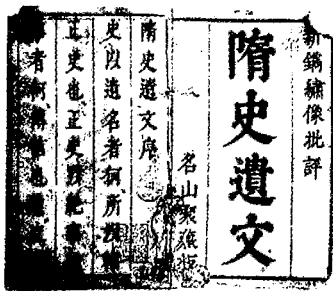 新鐫繡像批評
隋史遺文
名山聚藏板
隋史遺文序
史以遺名者何所以輔
正史也正史以紀事
者何傳信也遺史